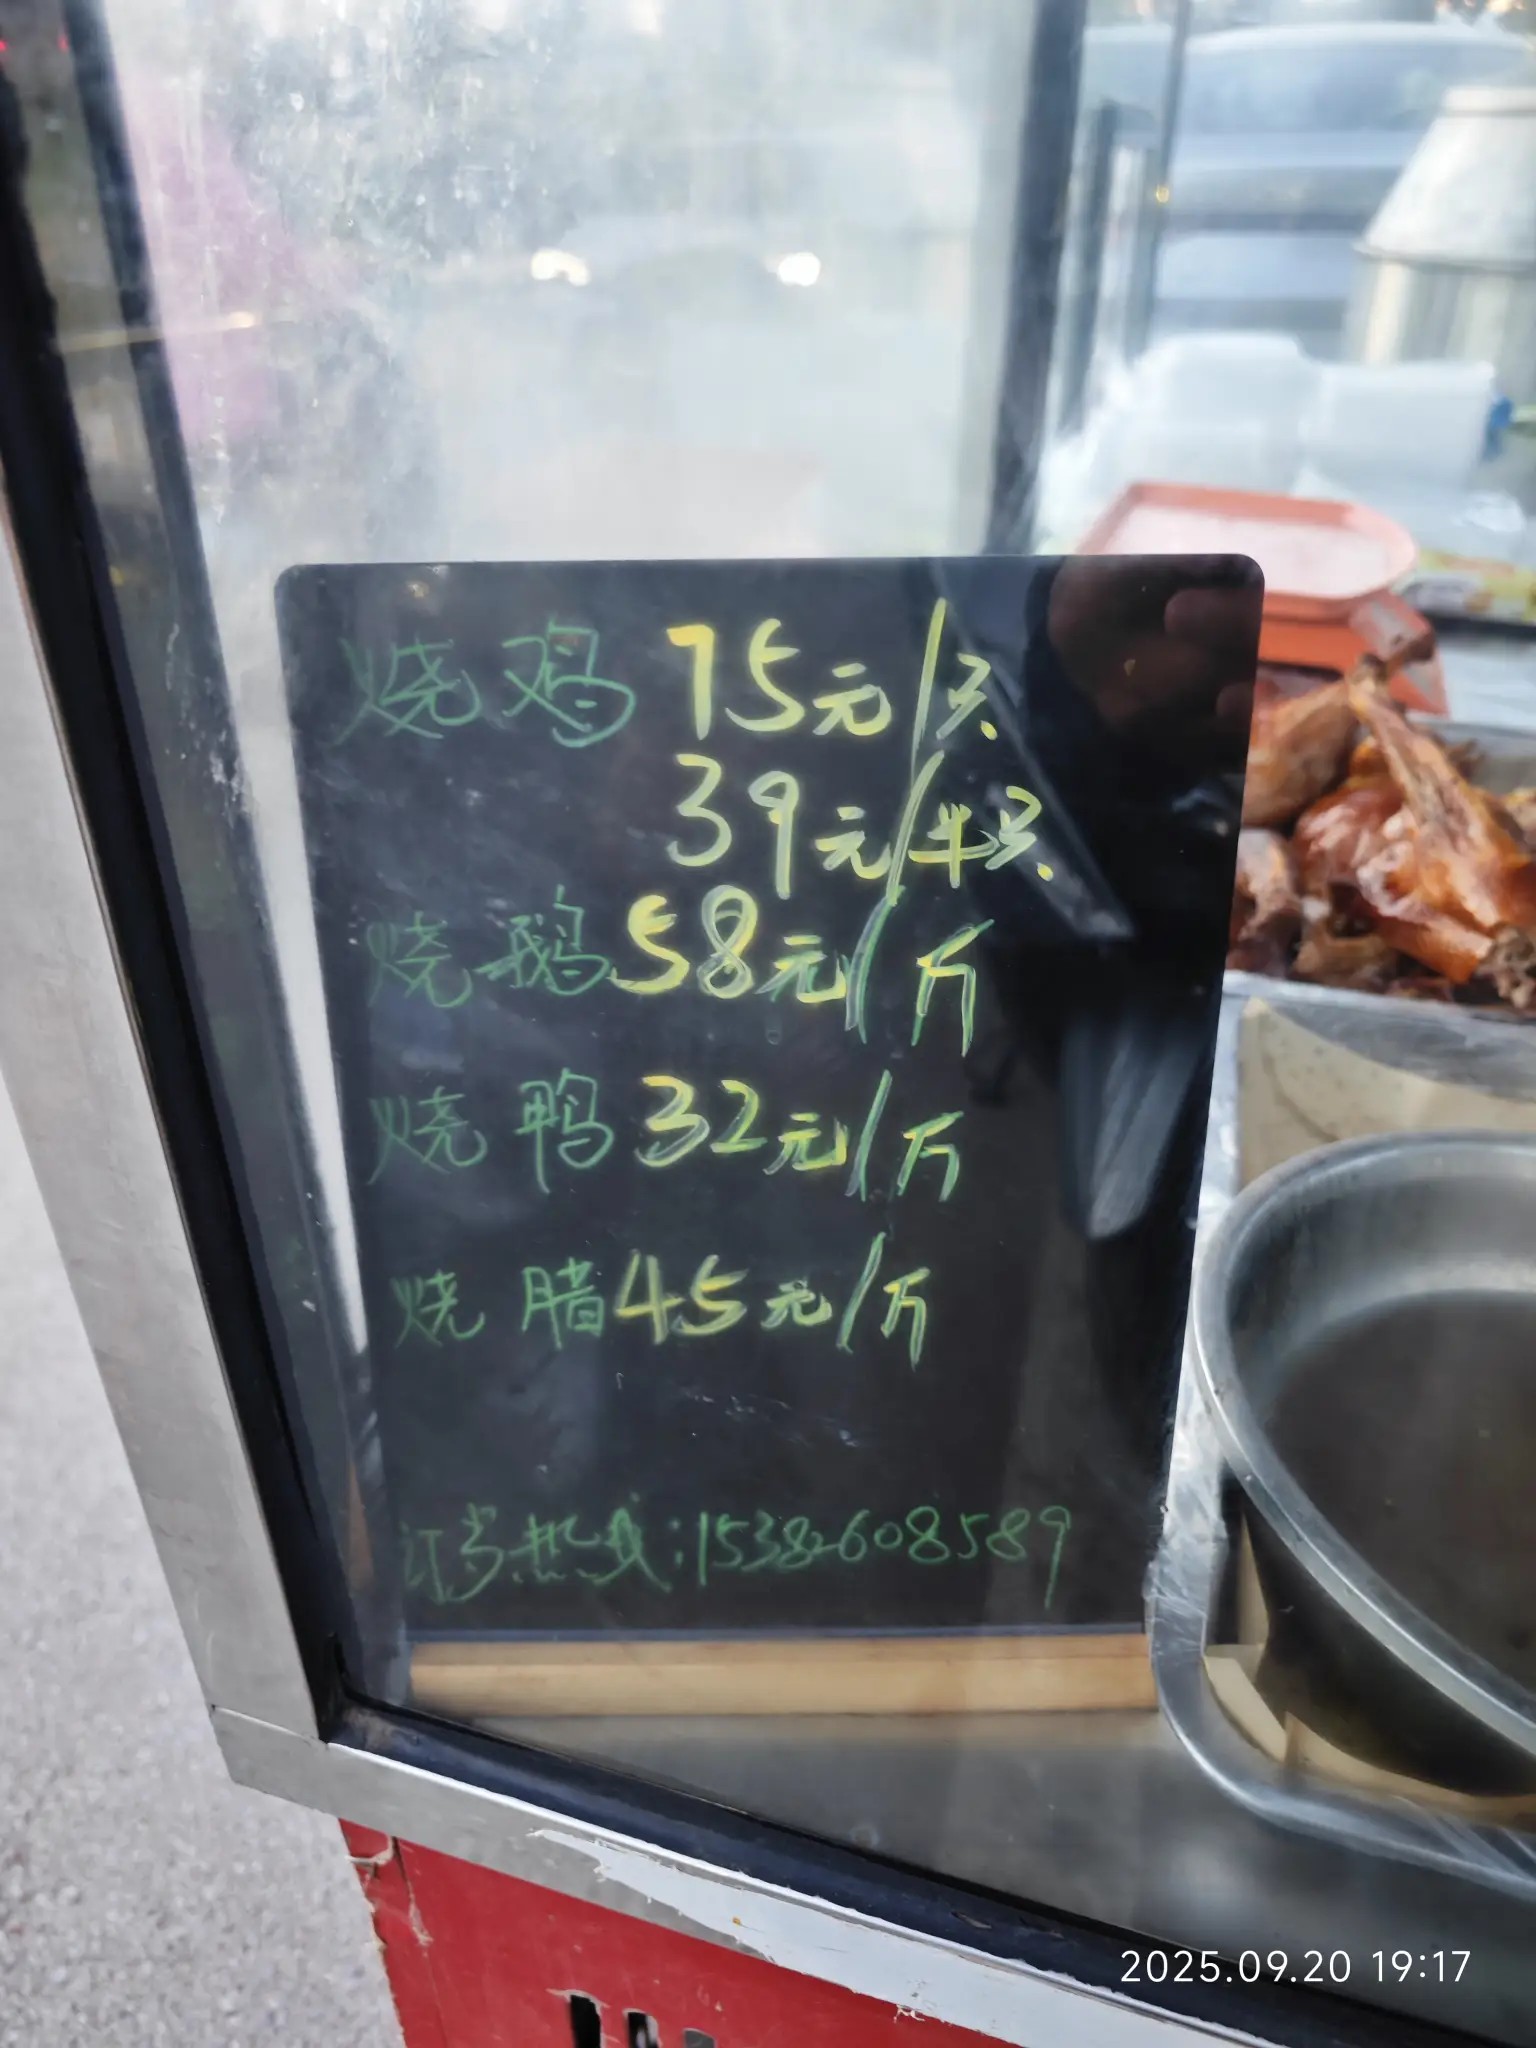 烧鸡 75元/只
39元/半只
烧鹅 58元/斤
烧鸭 32元/斤
烧腊 45元/斤
订当热线:15382608589
2025.09.20 19:17